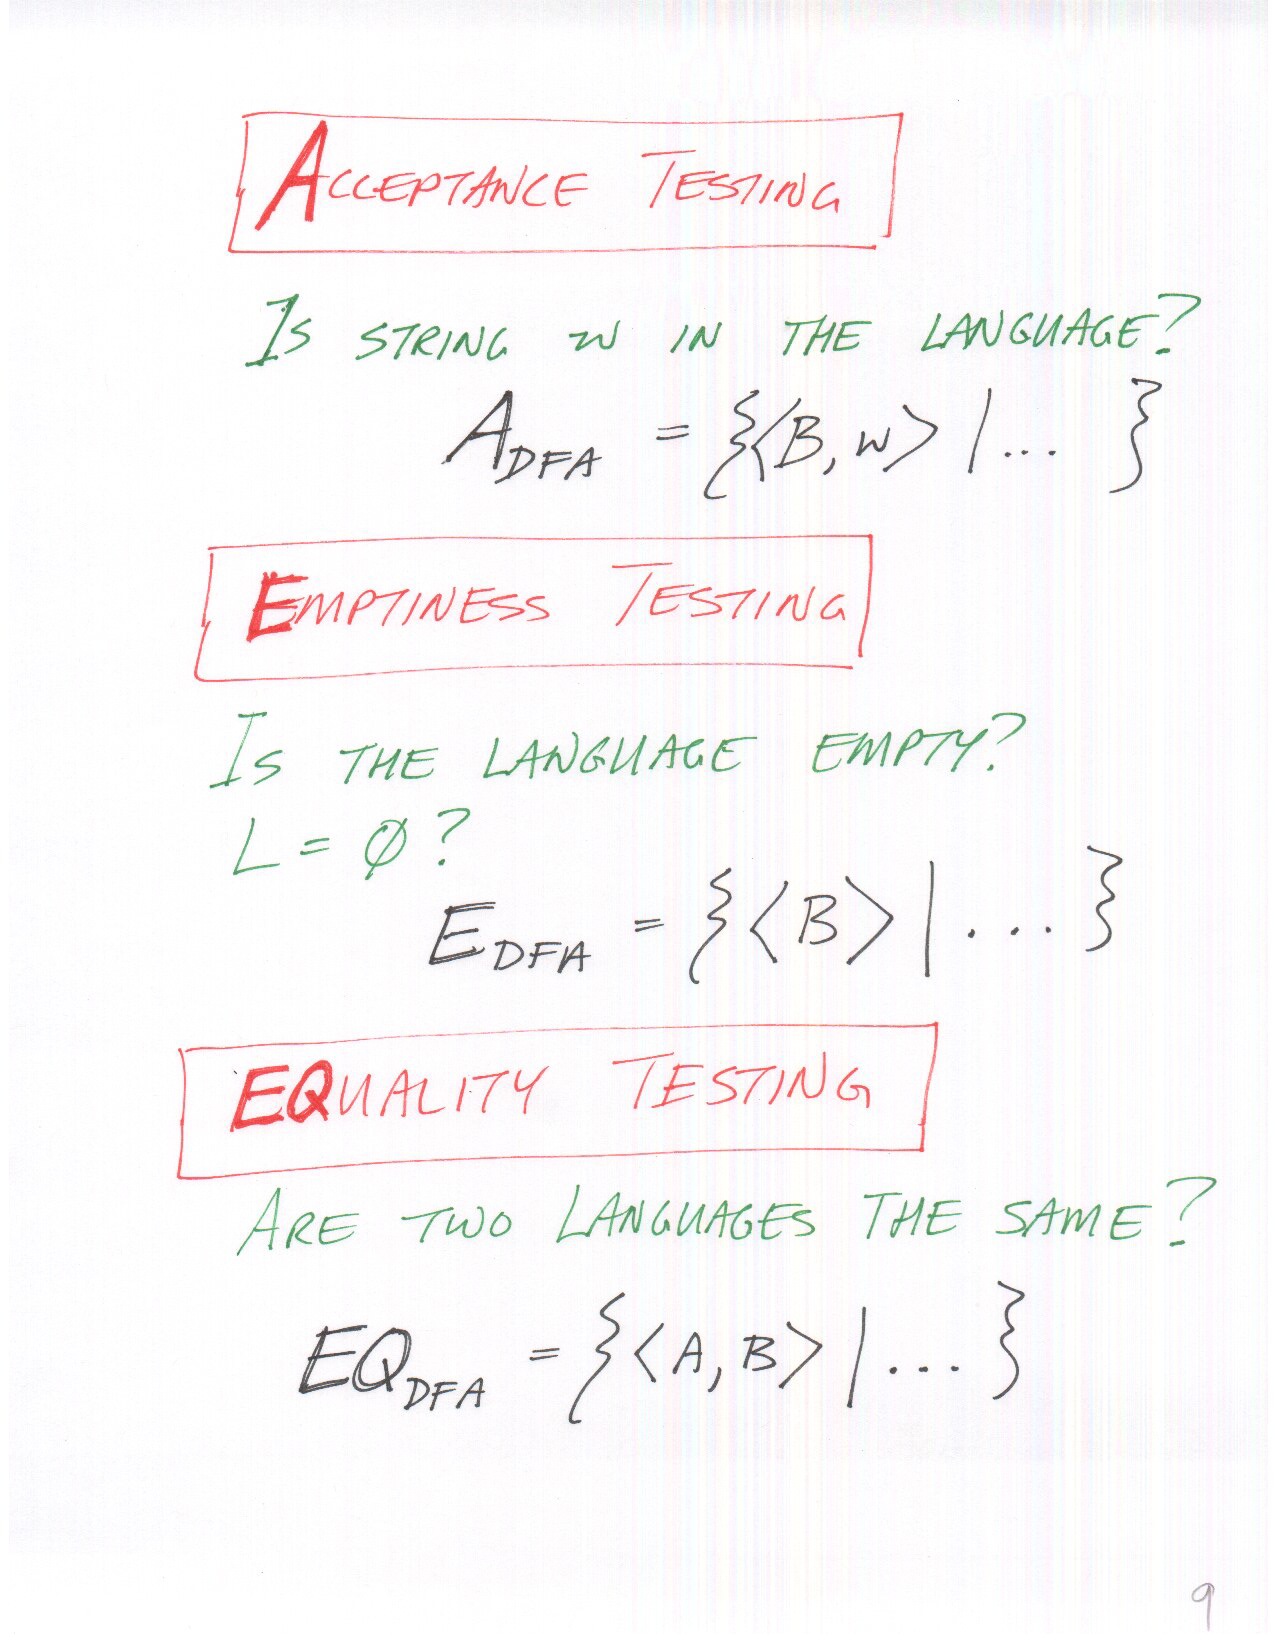 ACCEPTANCE TESTING
IS STRING w IN THE LANGUAGE?
A_DFA = {<B, w> | ... }
EMPTINESS TESTING
IS THE LANGUAGE EMPTY?
L = Ø ?
E_DFA = {<B> | ... }
EQUALITY TESTING
ARE TWO LANGUAGES THE SAME?
EQ_DFA = {<A, B> | ... }
9